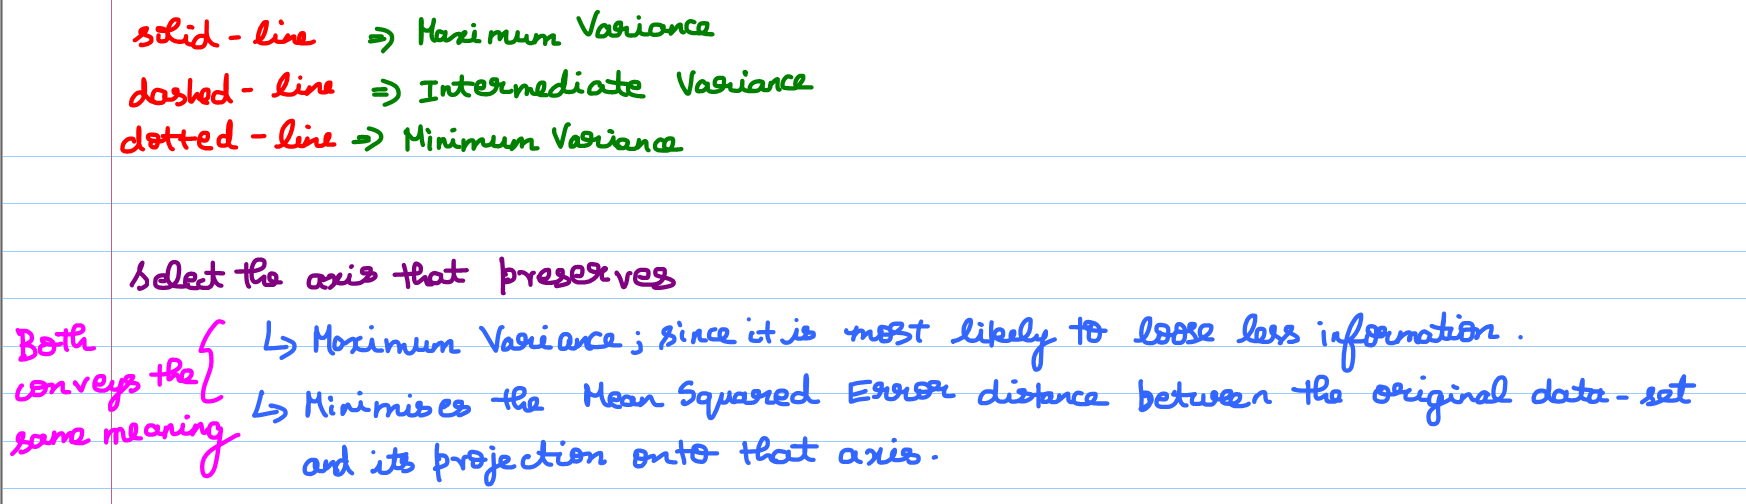 solid - line => Maximum Variance
dashed - line => Intermediate Variance
dotted - line => Minimum Variance
Select the axis that preserves
Both conveys the same meaning {
↳ Maximum Variance; since it is most likely to loose less information.
↳ Minimises the Mean Squared Error distance between the original data-set
and its projection onto that axis.